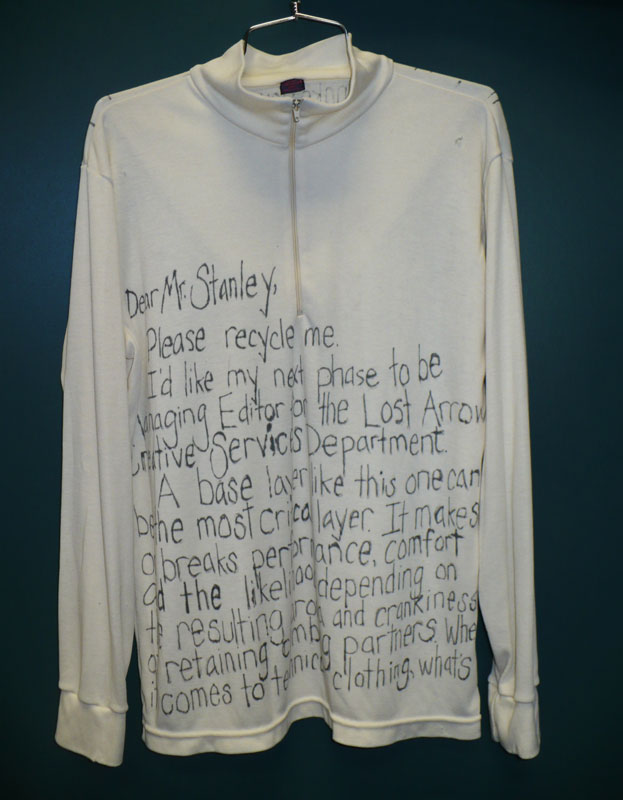 Dear Mr. Stanley,
Please recycle me.
I'd like my next phase to be
Managing Editor for the Lost Arrow
Creative Services Department.
A base layer like this one can
be the most critical layer. It makes
or breaks performance, comfort
and the likelihood depending on
the resulting and crankiness
of retaining climbing partners. When
it comes to technical clothing, what's